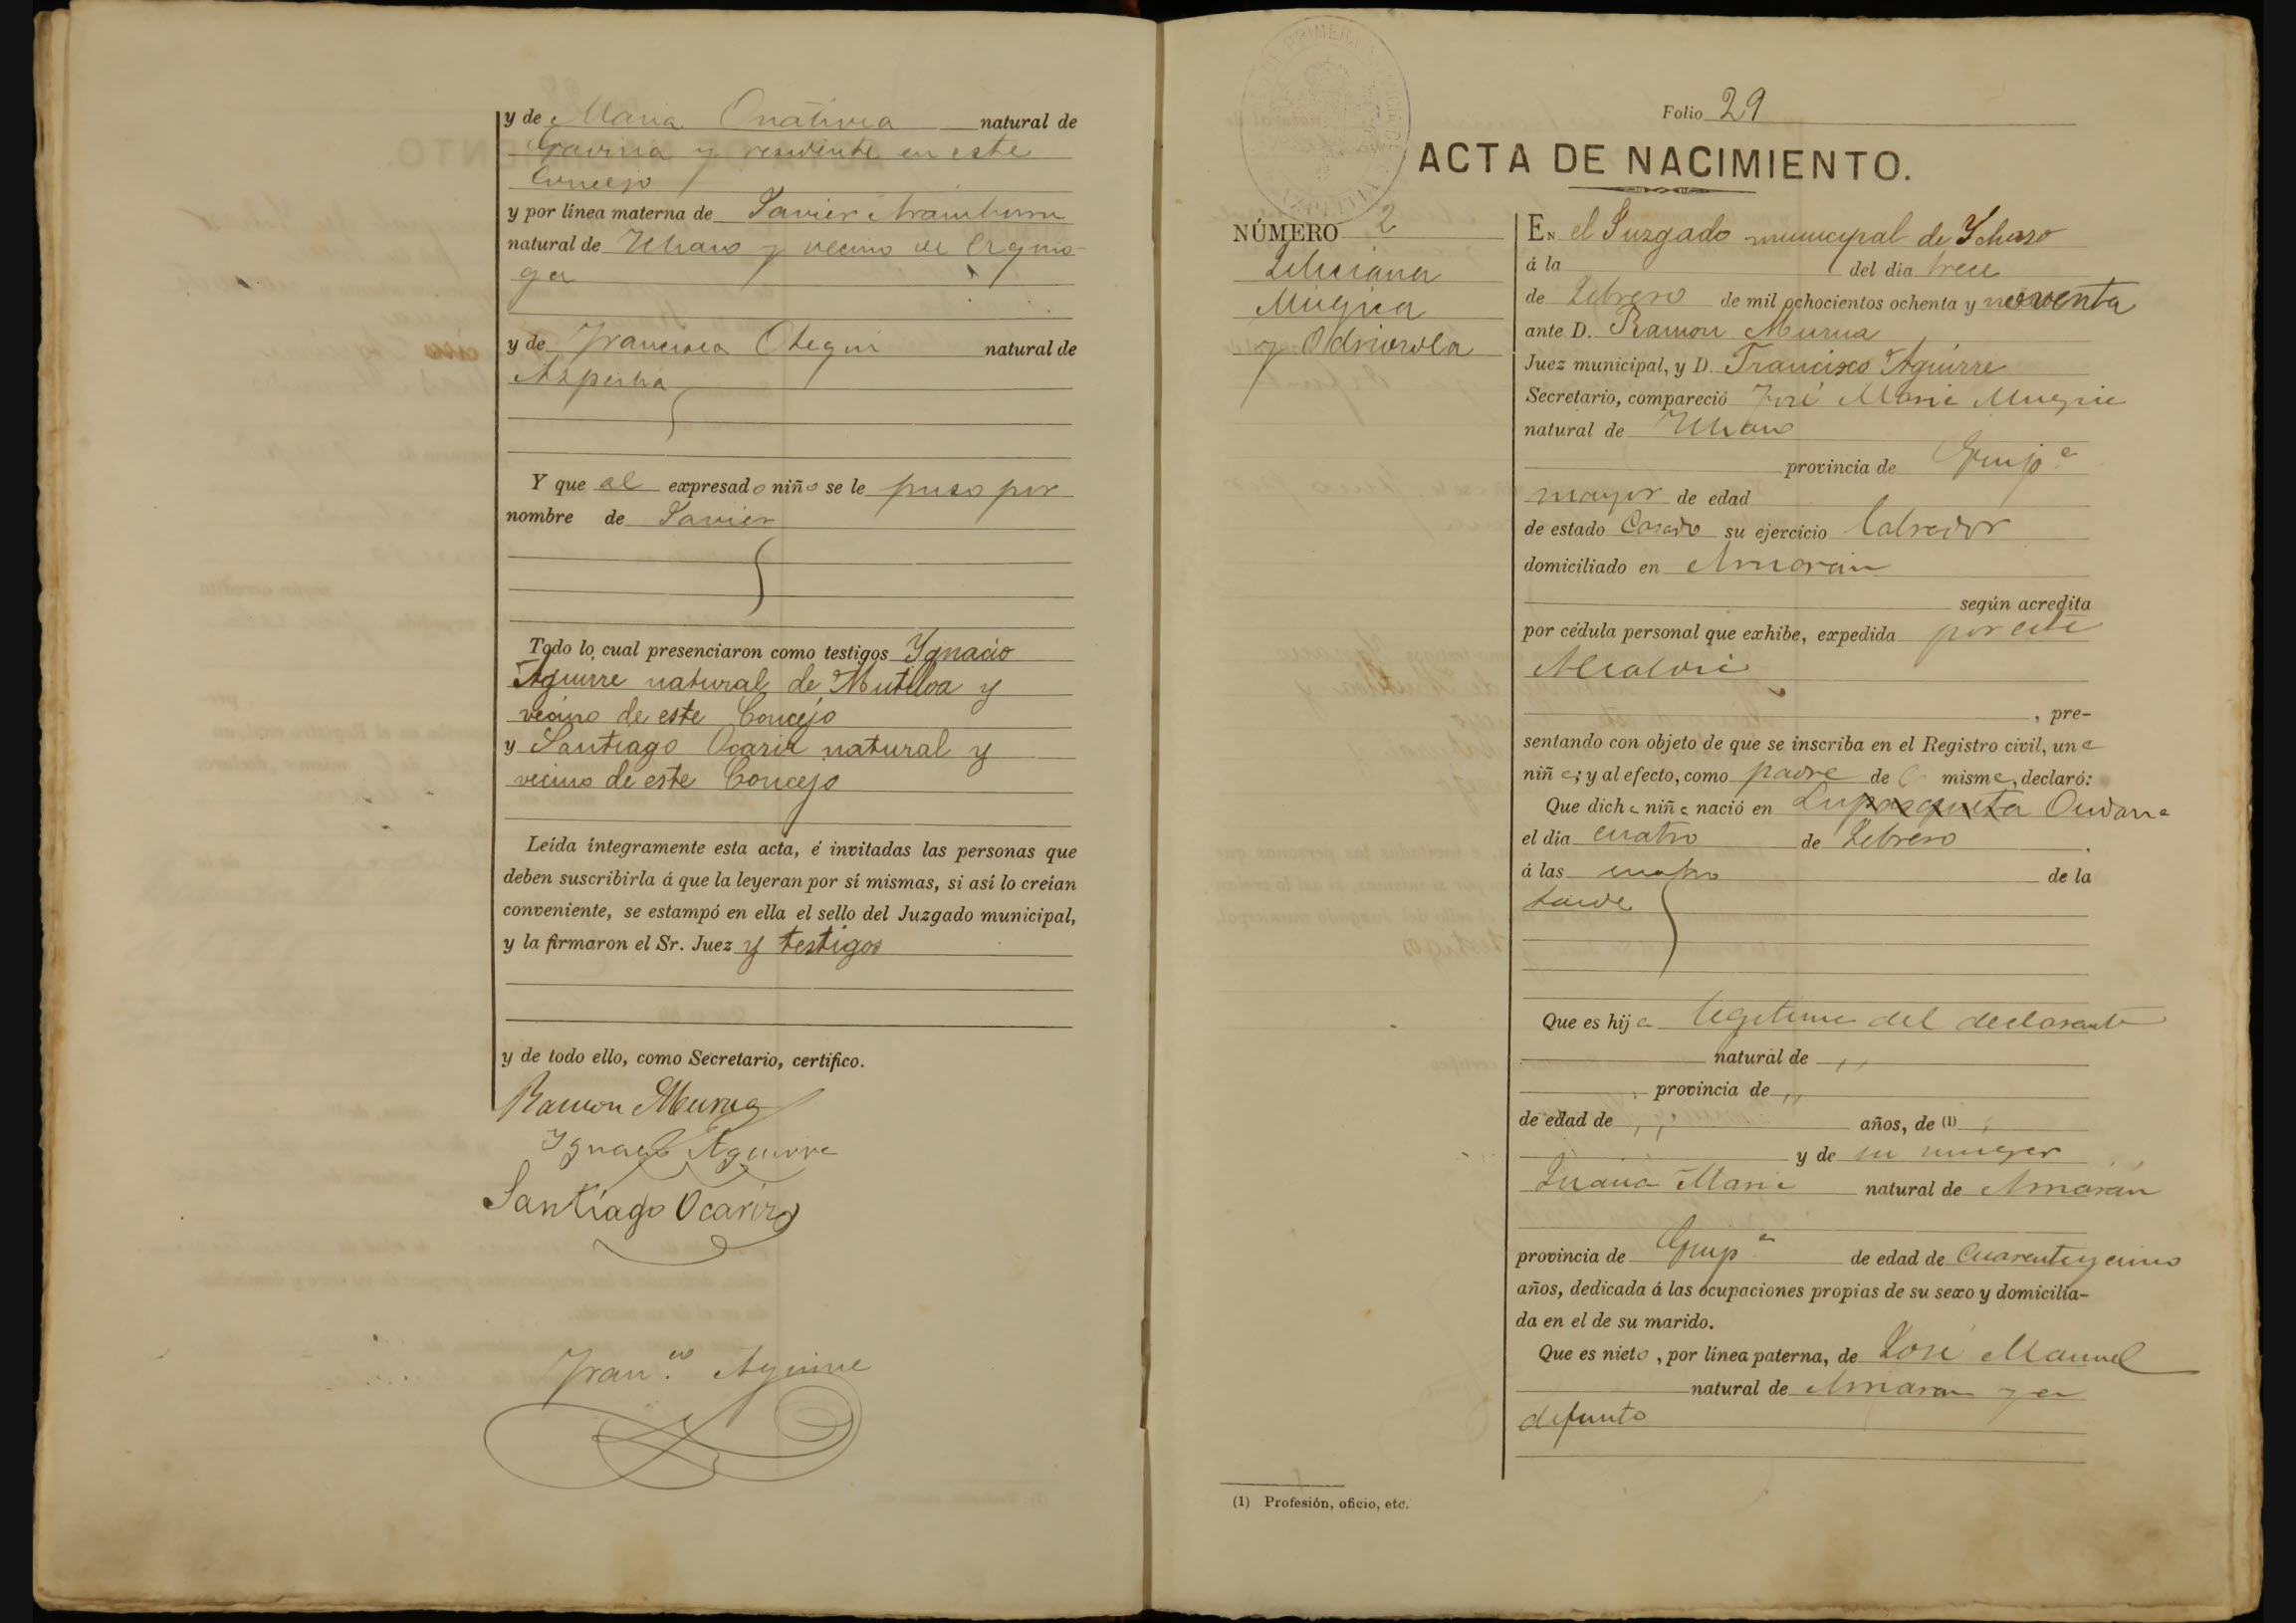 y de Maria Oñativia natural de
Gaviria y residente en este
Concejo
y por línea materna de Javier Aramburu
natural de Ichaso y vecino de Ezquio-
ga
y de Francisca Otegui natural de
Azpeitia
Y que al expresado niño se le puso por
nombre de Javier
Todo lo cual presenciaron como testigos Ygnacio
Aguirre natural de Mutiloa y
vecino de este Concejo
y Santiago Ocariz natural y
vecino de este Concejo
Leída íntegramente esta acta, é invitadas las personas que
deben suscribirla á que la leyeran por sí mismas, si así lo creían
conveniente, se estampó en ella el sello del Juzgado municipal,
y la firmaron el Sr. Juez y testigos
y de todo ello, como Secretario, certifico.
Ramon Murua
Ygnacio Aguirre
Santiago Ocariz
Fran.co Aguirre
Folio 29
ACTA DE NACIMIENTO.
NÚMERO 2
Feliciana
Mugica
y Odriozola
EN el Juzgado municipal de Ychaso
á la del dia trece
de Febrero de mil ochocientos ochenta y noventa
ante D. Ramon Murua
Juez municipal, y D. Francisco Aguirre
Secretario, compareció José Maria Mugica
natural de Ichaso
provincia de Guip.a
mayor de edad
de estado Casado su ejercicio labrador
domiciliado en Arriaran
según acredita
por cédula personal que exhibe, expedida por este
Alcalde
, pre-
sentando con objeto de que se inscriba en el Registro civil, una
niña; y al efecto, como padre de la misma, declaró:
Que dicha niña nació en
el día cuatro de Febrero
á las cuatro de la
tarde
Que es hija legitima del declarante
natural de ,,
provincia de ,,
de edad de ,, años, de (1) ,
y de su muger
Juana Maria natural de Arriaran
provincia de Guip.a de edad de Cuarenta y cinco
años, dedicada á las ocupaciones propias de su sexo y domicilia-
da en el de su marido.
Que es nieto, por línea paterna, de José Manuel
natural de Arriaran ya
difunto
(1) Profesión, oficio, etc.